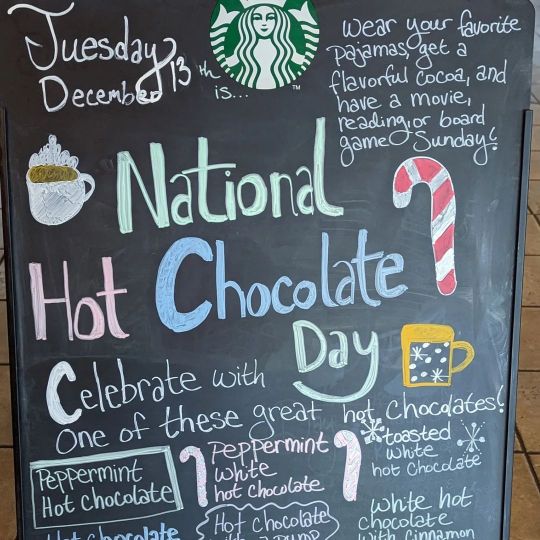 Tuesday
December 13th
is...
Wear your favorite
pajamas, get a
flavorful cocoa, and
have a movie,
reading, or board
game Sunday!
TM
National
Hot Chocolate
Day
Celebrate with
one of these great hot chocolates!
Peppermint
Hot Chocolate
Peppermint
white
hot chocolate
toasted
white
hot chocolate
Hot Chocolate
Hot Chocolate
with a pump
white hot
chocolate
with cinnamon